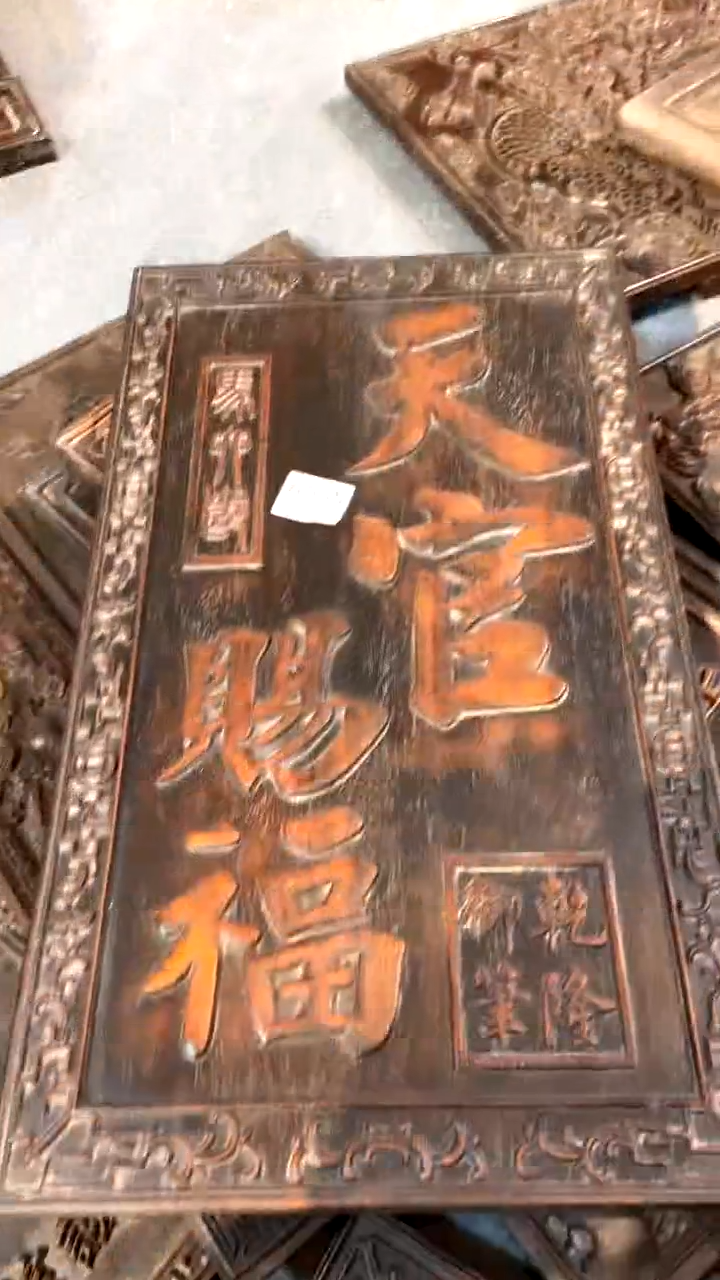 天官
賜福
乾隆
御筆